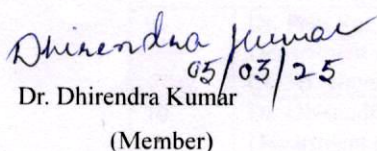 Dhirendra Kumar
05/03/25
Dr. Dhirendra Kumar
(Member)